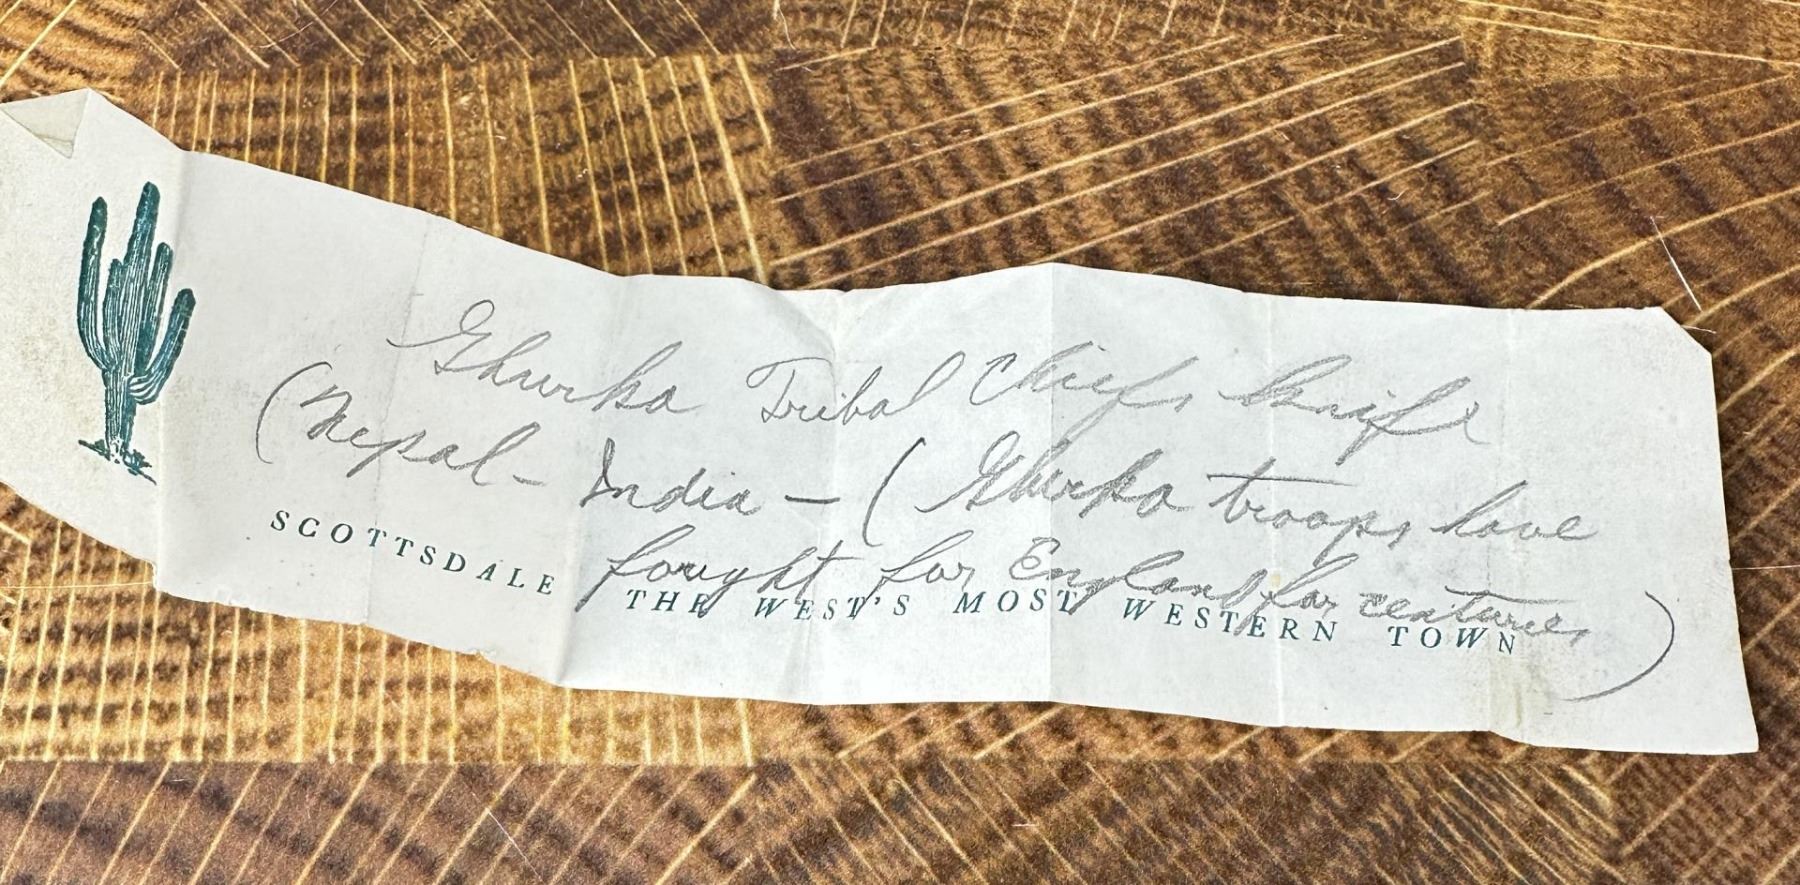 Ghurka Tribal Chiefs Knife
(Nepal - India - (Ghurka troops have
fought for England for centuries)
SCOTTSDALE THE WEST'S MOST WESTERN TOWN